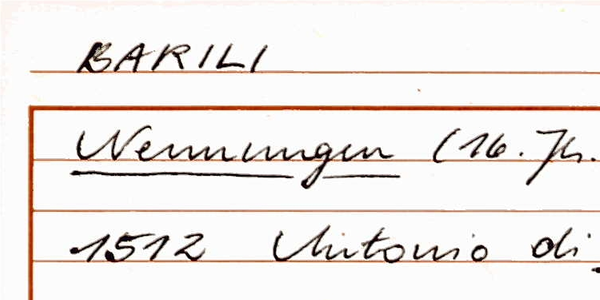 BARILI
Nennungen (16. Jh.
1512 Antonio di